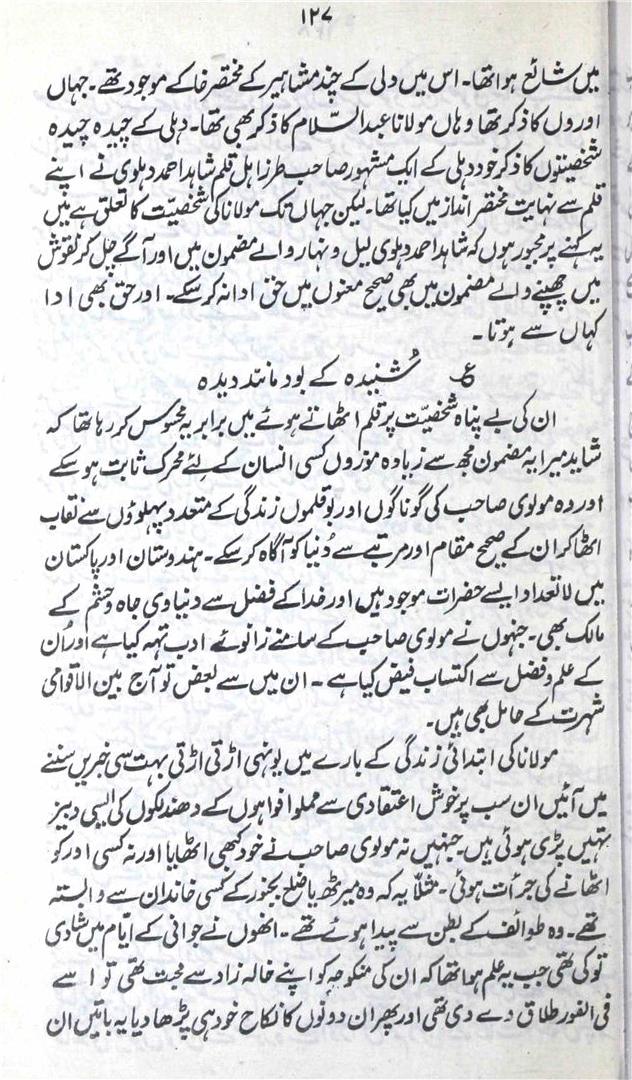 ۱۲۷
میں شائع ہوا تھا۔ اس میں دلی کے چند مشاہیر کے مختصر خاکے موجود تھے۔ جہاں
اوروں کا ذکر تھا وہاں مولانا عبدالسّلام کا ذکر بھی تھا۔ دہلی کے چیدہ چیدہ
شخصیتوں کا ذکر خود دہلی کے ایک مشہور صاحب طرز اہل قلم شاہد احمد دہلوی نے اپنے
قلم سے نہایت مختصر انداز میں کیا تھا۔ لیکن جہاں تک مولانا کی شخصیّت کا تعلق ہے میں
یہ کہنے پر مجبور ہوں کہ شاہد احمد دہلوی لیل و نہار والے مضمون میں اور آگے چل کر نقوش
میں چھپنے والے مضمون میں بھی صحیح معنوں میں حق ادا نہ کر سکے۔ اور حق بھی ادا
کہاں سے ہوتا۔
ع شُنیدہ کے بود مانند دیدہ
ان کی بے پناہ شخصیّت پر قلم اٹھاتے ہوئے میں برابر یہ محسوس کر رہا تھا کہ
شاید میرا یہ مضمون مجھ سے زیادہ موزوں کسی انسان کے لئے محرک ثابت ہو سکے
اور وہ مولوی صاحب کی گوناگوں اور بوقلموں زندگی کے متعدد پہلوؤں سے نقاب
اٹھا کر ان کے صحیح مقام اور مرتبے سے دُنیا کو آگاہ کر سکے۔ ہندوستان اور پاکستان
میں لاتعداد ایسے حضرات موجود ہیں اور خدا کے فضل سے دنیاوی جاہ و حشم کے
مالک بھی۔ جنہوں نے مولوی صاحب کے سامنے زانوئے ادب تہہ کیا ہے اور اُن
کے علم و فضل سے اکتساب فیض کیا ہے۔ ان میں سے بعض تو آج بین الاقوامی
شہرت کے حامل بھی ہیں۔
مولانا کی ابتدائی زندگی کے بارے میں یونہی اڑتی اڑتی بہت سی خبریں سننے
میں آئیں ان سب پر خوش اعتقادی سے مملو افواہوں کے دھندلکوں کی ایسی دبیز
تہیں پڑی ہوئی ہیں۔ جنہیں نہ مولوی صاحب نے خود کبھی اٹھایا اور نہ کسی اور کو
اٹھانے کی جرأت ہوئی۔ مثلاً یہ کہ وہ میرٹھ یا ضلع بجنور کے کسی خاندان سے وابستہ
تھے۔ وہ طوائف کے بطن سے پیدا ہوئے تھے۔ انھوں نے جوانی کے ایّام میں شادی
تو کی تھی جب یہ علم ہوا تھا کہ ان کی منکوحہ کو اپنے خالہ زاد سے محبت تھی تو اسے
فی الفور طلاق دے دی تھی اور پھر ان دونوں کا نکاح خود ہی پڑھا دیا یہ باتیں ان